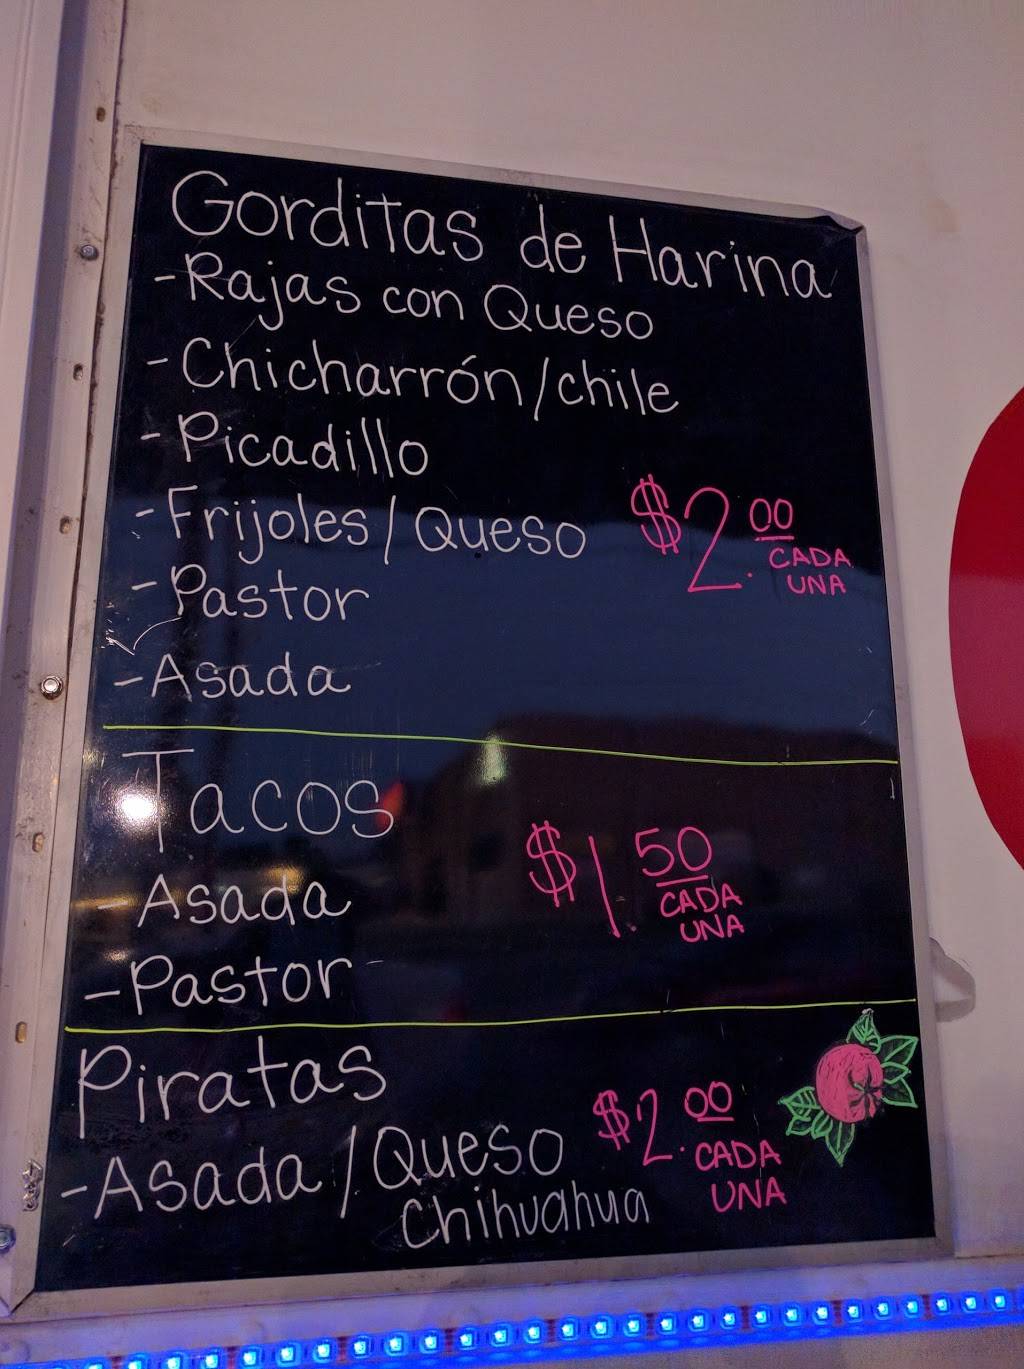 Gorditas de Harina
-Rajas con Queso
-Chicharrón/chile
-Picadillo
-Frijoles/Queso
$2.00
CADA
UNA
-Pastor
-Asada
Tacos
-Asada
$1.50
CADA
UNA
-Pastor
Piratas
-Asada/Queso
Chihuahua
$2.00
CADA
UNA